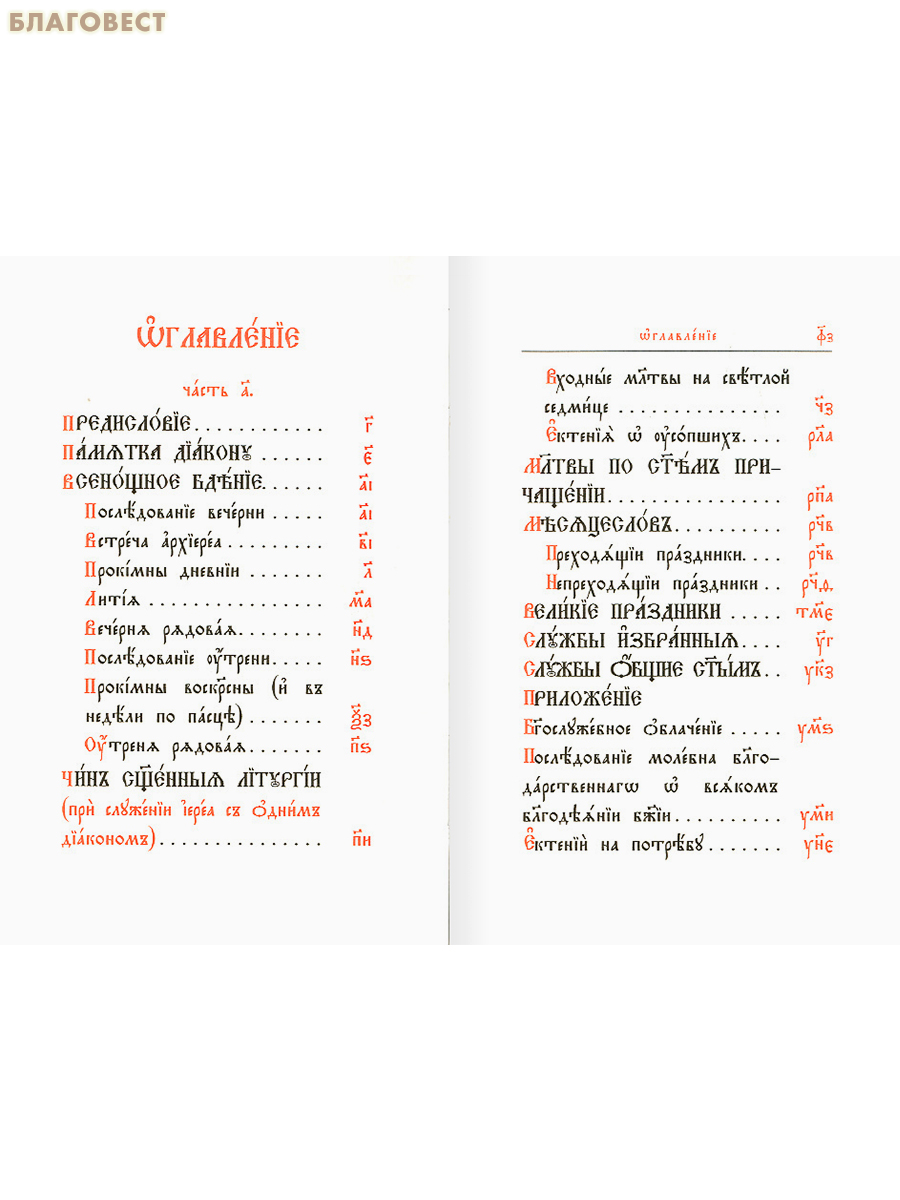 БЛАГОВЕСТ
Ѡ҆главле́нїе
ча́сть а҃.
Предисло́вїе............ г҃
Па́мѧтка дїа́конꙋ ...... є҃
Всено́щное бдѣ́нїе...... а҃і
Послѣ́дованїе вече́рни ..... а҃і
Встрѣ́ча а҆рхїере́а ......... в҃і
Прокі́мны дневні́и ....... л҃
Литі́ѧ ................ м҃а
Вече́рнѧ рѧдова́ѧ........ н҃д
Послѣ́дованїе оу҆́трени..... н҃ѕ
Прокі́мны воскрⷭ҇ны (и҆ въ
недѣ́ли по па́сцѣ) ....... ѯ҃з
Оу҆́тренѧ рѧдова́ѧ....... п҃ѕ
Чи́нъ сщ҃е́нныѧ лїтꙋргі́и
(прѝ слꙋже́нїи і҆ере́а съ ѻ҆дни́мъ
дїа́кономъ)................ п҃и
ѡ҆главле́нїе ф҃з
Входны́е мл҃твы на свѣ́тлой
седми́це ................ ч҃з
Є҆ктенїѧ̀ ѡ҆ оу҆со́пшихъ.... рл҃а
Мл҃твы по ст҃ѣ́мъ при-
чаще́нїи................. рп҃а
Мѣсѧцесло́въ........... рч҃в
Преходѧ́щїи пра́здники.... рч҃в
Непреходѧ́щїи пра́здники .. рч҃ѳ
Вели́кїе пра́здники ..... тм҃є
Слꙋ́жбы и҆збра́нныѧ.... у҃г
Слꙋ́жбы ѻ҆́бщие ст҃ы́мъ.. ук҃з
Приложе́нїе
Бг҃ослꙋже́бное ѻ҆блаче́нїе ..... ум҃ѕ
Послѣ́дованїе моле́бна бл҃го-
да́рственнагѡ ѡ҆ всѧ́комъ
бл҃годѣѧ́нїи бж҃їи.......... ум҃и
Є҆ктені́й на потре́бꙋ ....... ун҃є